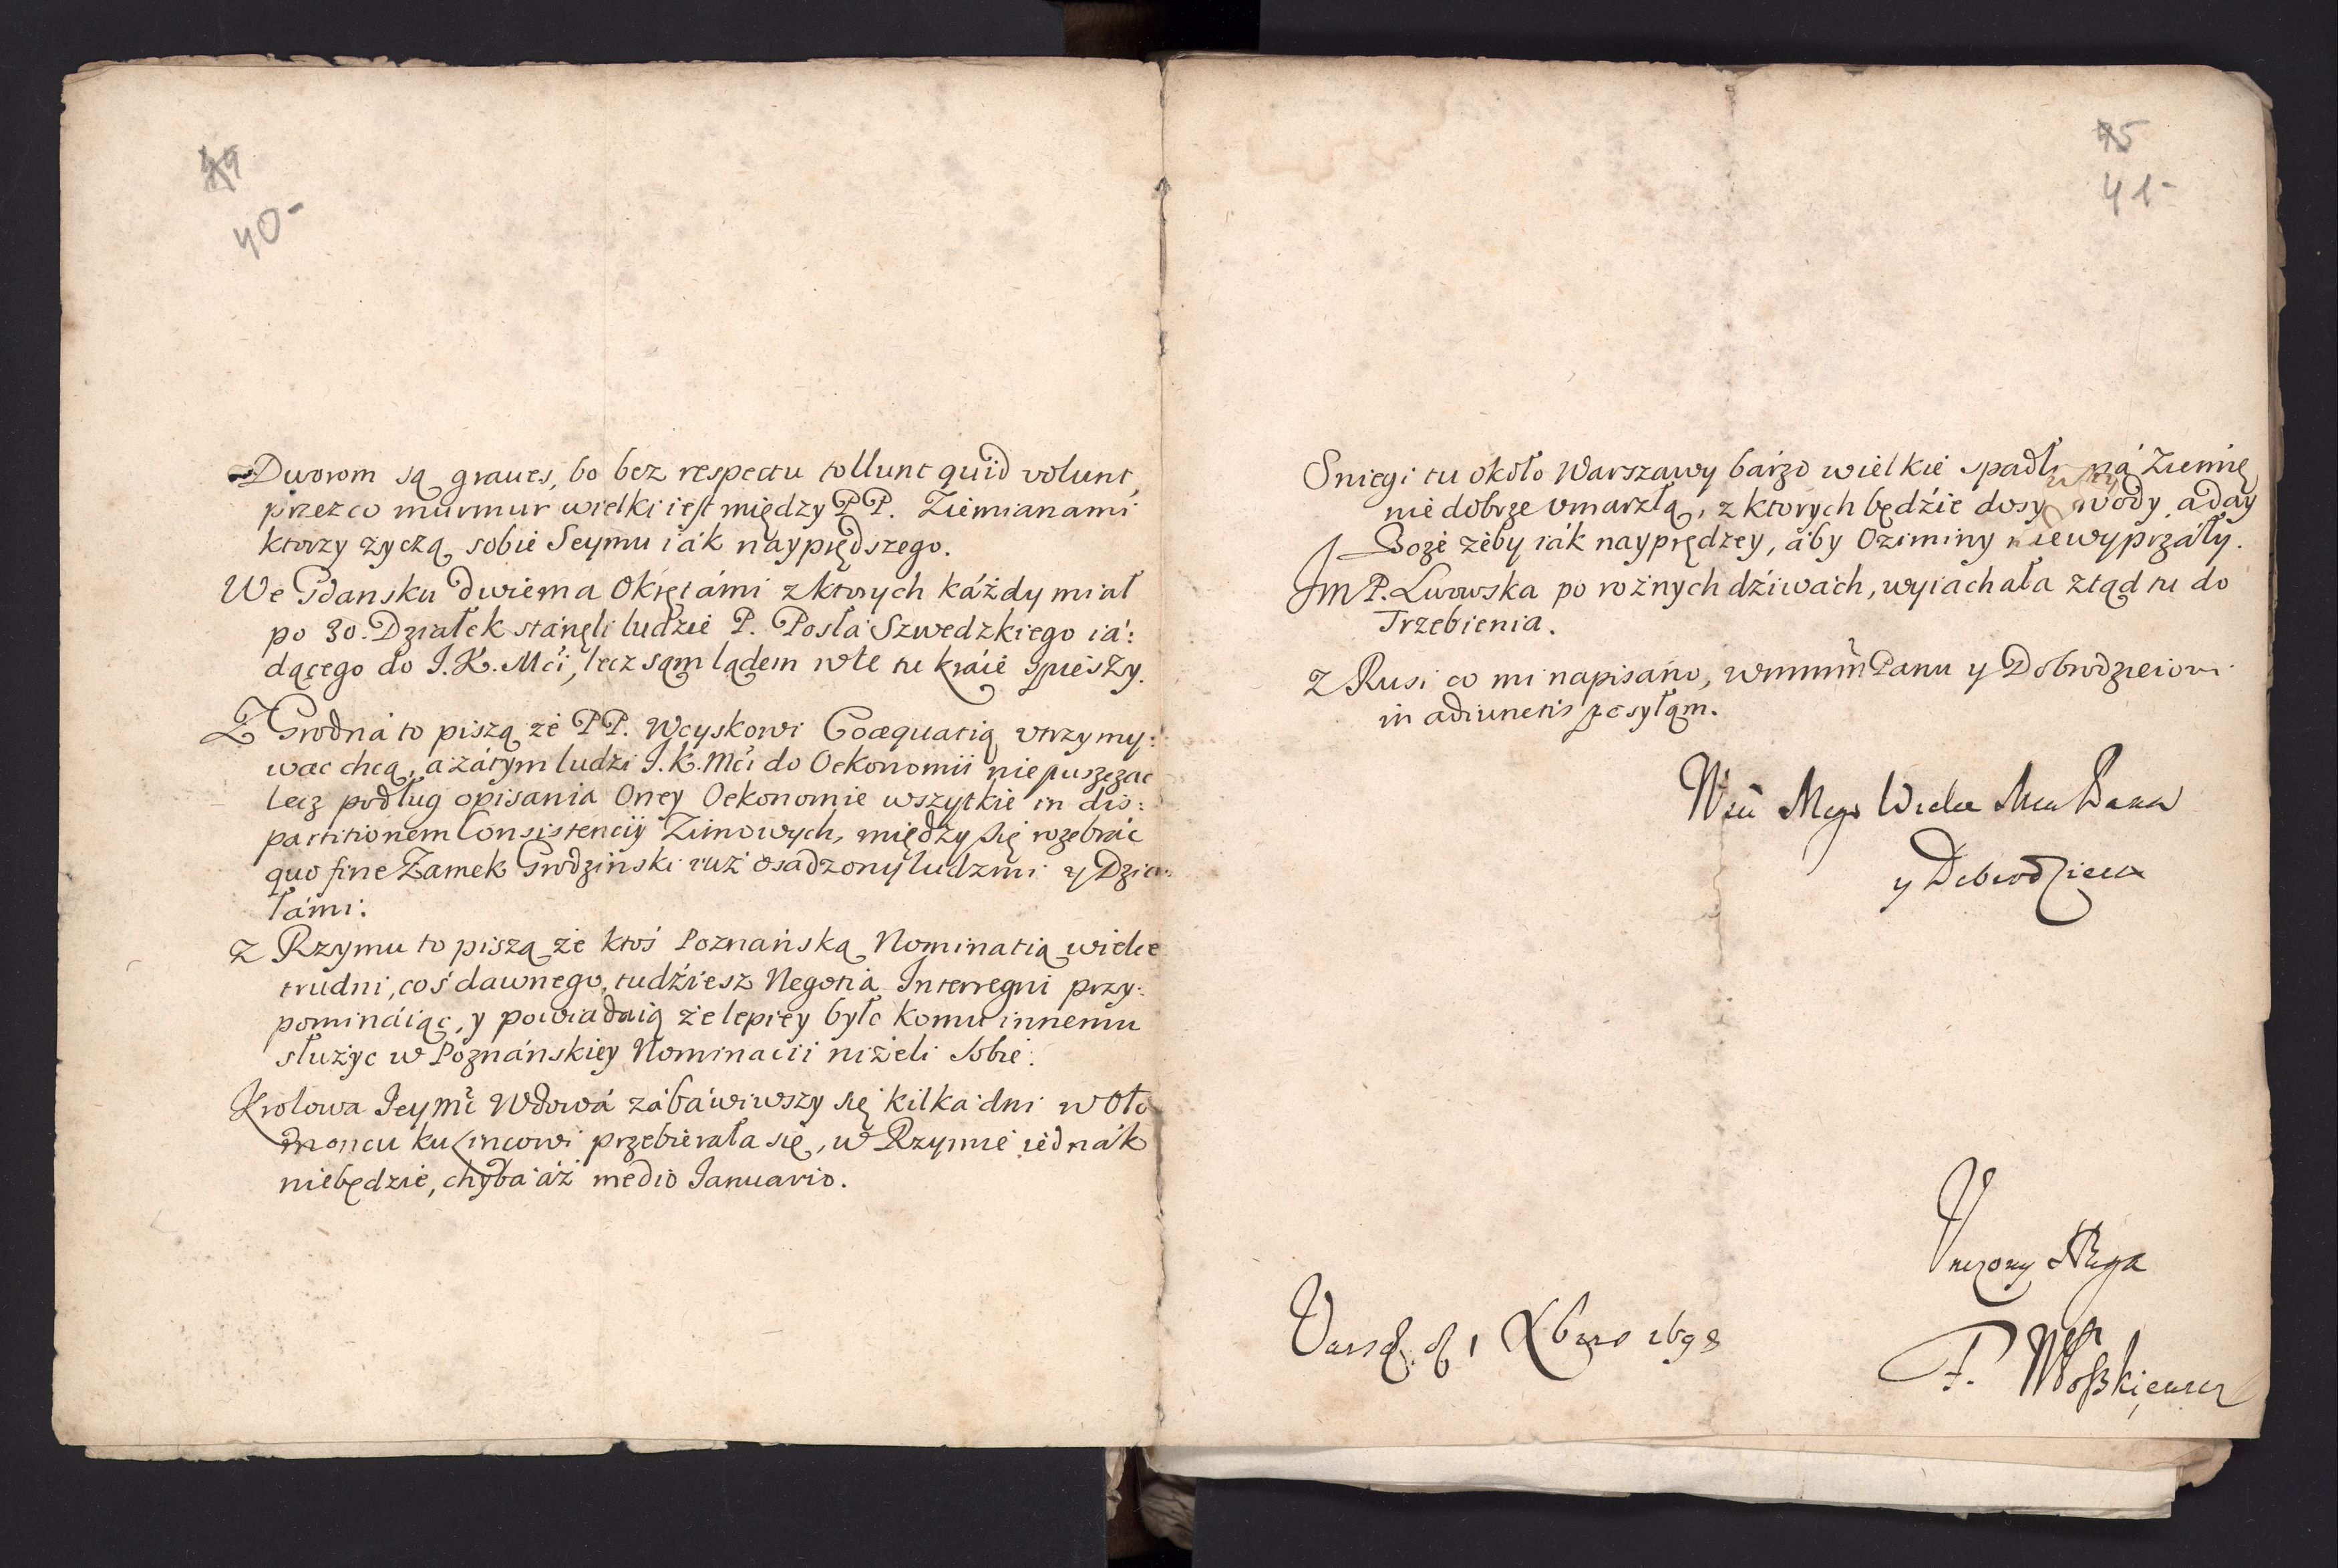 44
40-
Dworom są graues, bo bez respectu tollunt quid volunt,
przez co murmur wielki iest między PP. Ziemianami
ktorzy zyczą sobie Seymu iák nayprędszego.
We Gdansku dwiema Okrętámi z ktorych káżdy miał
po 30. Działek stánęli ludzie P. Posła Szwedzkiego iá:
dącego do J.K.Mći, lecz sąm lądem w te tu kráie spieszy.
Z Grodná to piszą że PP. Woyskowi Coæquatią vtrzymy:
wac chcą, a zátym ludzi J.K.Mći do Oekonomii nie puszczac
lecz podług opisania Oney Oekonomie wszytkie in dis:
partitionem Consistencij Zimowych, między się rozebrác
quo fine Zamek Grodzinski iuż osadzony ludzmi y Dzia:
łámi.
Z Rzymu to piszą że ktoś Poznańską Nominatią wielce
trudni, coś dawnego, tudźiesz Negotia Interregni przy:
pomináiąc, y powiadaią że lepiey było komu innemu
służyc w Poznánskiey Nominacii niżeli sobie.
Krolowa Jeymć Wdowá zábáwiwszy się kilka dni w Oło
moncu ku Lincowi przebierała się, w Rzymie iednák
niebędzie, chyba áż medio Ianuario.
45
41-
Sniegi tu około Warszawy bárzo wielkie spadły ná Ziemię
nie dobrze vmarzłą, z ktorych będźie dosyc wody, a day
Boże żeby iák nayprędzey, áby Oziminy niewyprzáły.
Jm P. Lwowska po rożnych dźiwach, wyiachała ztąd tu do
Trzebienia.
Z Rusi co mi napisano, Panu y Dobrodzieiowi
in adiunctis posyłąm.
Mego Wielce Pana
y Dobrodzieia
Vnizony Sługa
1 Xbris 1698
F.